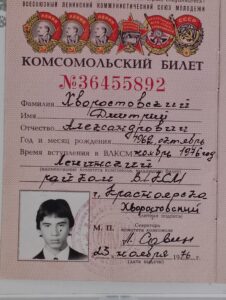 ВСЕСОЮЗНЫЙ ЛЕНИНСКИЙ КОММУНИСТИЧЕСКИЙ СОЮЗ МОЛОДЕЖИ
КОМСОМОЛЬСКИЙ БИЛЕТ
№36455892
Фамилия Хворостовский
Имя Дмитрий
Отчество Александрович
Год и месяц рождения 1962 октябрь
Время вступления в ВЛКСМ ноябрь 1976 год
Ленинский
райком ВЛКСМ
г. Красноярска
Хворостовский
М. П. Секретарь
23 ноября 1976 г.